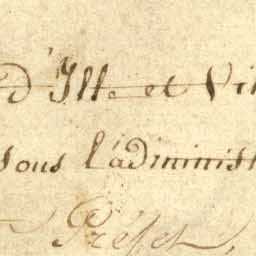 d'Ille et Vil
sous l'administ
Préfet,